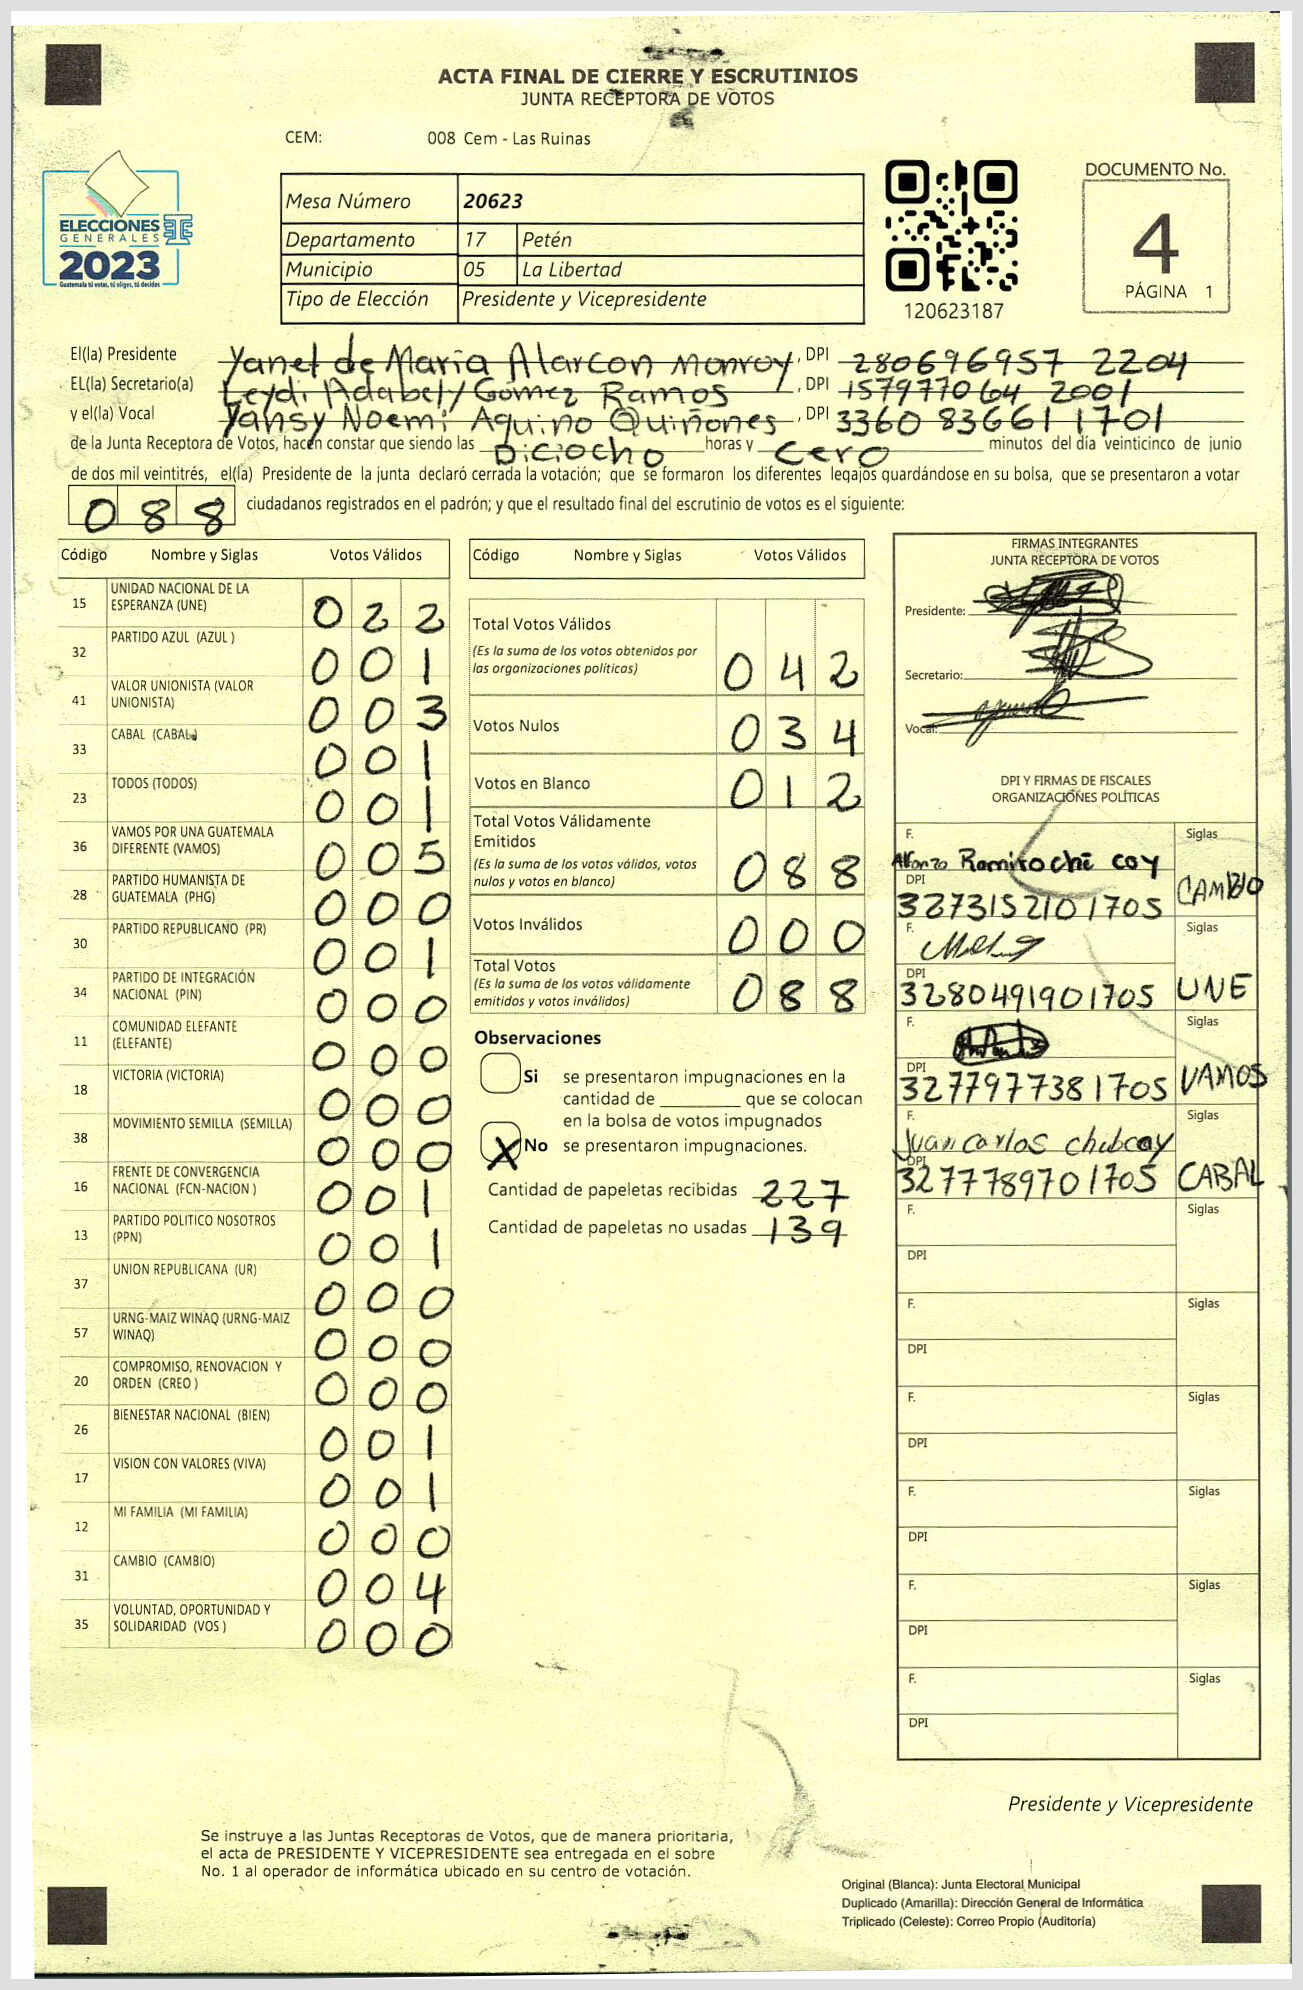 ACTA FINAL DE CIERRE Y ESCRUTINIOS
JUNTA RECEPTORA DE VOTOS
CEM: 008 Cem - Las Ruinas
ELECCIONES
GENERALES
2023
Guatemala tú votas, tú eliges, tú decides
Mesa Número 20623
Departamento 17 Petén
Municipio 05 La Libertad
Tipo de Elección Presidente y Vicepresidente
120623187
DOCUMENTO No.
4
PÁGINA 1
El(la) Presidente Yanet de María Alarcon Monroy, DPI 280696957 2204
EL(la) Secretario(a) Leydi Adabely Gómez Ramos, DPI 157977064 2001
y el(la) Vocal Yansy Noemi Aquino Quiñones, DPI 3360 83661 1701
de la Junta Receptora de Votos, hacen constar que siendo las Diciocho horas y Cero minutos del día veinticinco de junio
de dos mil veintitrés, el(la) Presidente de la junta declaró cerrada la votación; que se formaron los diferentes legajos guardándose en su bolsa, que se presentaron a votar
088 ciudadanos registrados en el padrón; y que el resultado final del escrutinio de votos es el siguiente:
Código Nombre y Siglas Votos Válidos
15 UNIDAD NACIONAL DE LA
ESPERANZA (UNE) 022
32 PARTIDO AZUL (AZUL ) 001
41 VALOR UNIONISTA (VALOR
UNIONISTA) 003
33 CABAL (CABAL) 001
23 TODOS (TODOS) 001
36 VAMOS POR UNA GUATEMALA
DIFERENTE (VAMOS) 005
28 PARTIDO HUMANISTA DE
GUATEMALA (PHG) 000
30 PARTIDO REPUBLICANO (PR) 001
34 PARTIDO DE INTEGRACIÓN
NACIONAL (PIN) 000
11 COMUNIDAD ELEFANTE
(ELEFANTE) 000
18 VICTORIA (VICTORIA) 000
38 MOVIMIENTO SEMILLA (SEMILLA) 000
16 FRENTE DE CONVERGENCIA
NACIONAL (FCN-NACION ) 001
13 PARTIDO POLITICO NOSOTROS
(PPN) 001
37 UNION REPUBLICANA (UR) 000
57 URNG-MAIZ WINAQ (URNG-MAIZ
WINAQ) 000
20 COMPROMISO, RENOVACION Y
ORDEN (CREO ) 000
26 BIENESTAR NACIONAL (BIEN) 001
17 VISION CON VALORES (VIVA) 001
12 MI FAMILIA (MI FAMILIA) 000
31 CAMBIO (CAMBIO) 004
35 VOLUNTAD, OPORTUNIDAD Y
SOLIDARIDAD (VOS ) 000
Código Nombre y Siglas Votos Válidos
Total Votos Válidos
(Es la suma de los votos obtenidos por
las organizaciones políticas) 042
Votos Nulos 034
Votos en Blanco 012
Total Votos Válidamente
Emitidos
(Es la suma de los votos válidos, votos
nulos y votos en blanco) 088
Votos Inválidos 000
Total Votos
(Es la suma de los votos válidamente
emitidos y votos inválidos) 088
Observaciones
Si se presentaron impugnaciones en la
cantidad de ________ que se colocan
en la bolsa de votos impugnados
X No se presentaron impugnaciones.
Cantidad de papeletas recibidas 227
Cantidad de papeletas no usadas 139
FIRMAS INTEGRANTES
JUNTA RECEPTORA DE VOTOS
Presidente:
Secretario:
Vocal:
DPI Y FIRMAS DE FISCALES
ORGANIZACIONES POLÍTICAS
F. Siglas
Alfonzo Ramiro ché coy
DPI
3273152101705 CAMBIO
F. Siglas
DPI
3280491901705 UNE
F. Siglas
DPI
3277977381705 VAMOS
F. Siglas
Juan carlos chub coy
DPI
3277789701705 CABAL
F. Siglas
DPI
F. Siglas
DPI
F. Siglas
DPI
F. Siglas
DPI
F. Siglas
DPI
F. Siglas
DPI
Presidente y Vicepresidente
Se instruye a las Juntas Receptoras de Votos, que de manera prioritaria,
el acta de PRESIDENTE Y VICEPRESIDENTE sea entregada en el sobre
No. 1 al operador de informática ubicado en su centro de votación.
Original (Blanca): Junta Electoral Municipal
Duplicado (Amarilla): Dirección General de Informática
Triplicado (Celeste): Correo Propio (Auditoría)